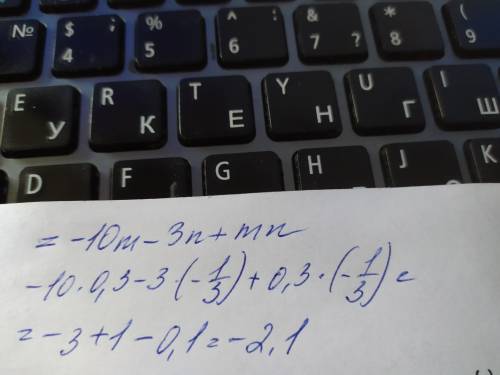 № $ ; 4 % 5 ^ : 6 & 7 ? * 8 ( 9
E У R К T Е Y Н U Г I Ш
D F G H J K
= -10m - 3n + mn
-10 · 0,3 - 3 · (-1/3) + 0,3 · (-1/3) =
= -3 + 1 - 0,1 = -2,1